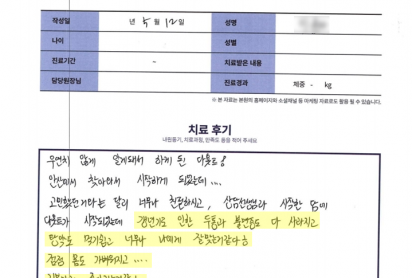 작성일 년 5월 12일 성명
나이 성별
진료기간 - 치료받은 내용
담당원장님 진료경과 체중 - kg
※ 본 자료는 본원의 홈페이지와 소셜채널 등 마케팅 자료로도 활용 될 수 있습니다.
치료 후기
내원동기, 치료과정, 만족도 등을 적어 주세요
우연치 않게 알게돼서 하게 된 다이어트!
안산에서 찾아와서 시작하게 되었는데....
고민했던거와는 달리 너무나 친절하시고, 상담선생님과 시작한
다이어트가 시작되었는데 갱년기로 인한 두통과 불면증도 다 사라지고
입맛도 땡기질고 너무나 나에게 잘맞는거같다
점점 몸도 가벼워지고....